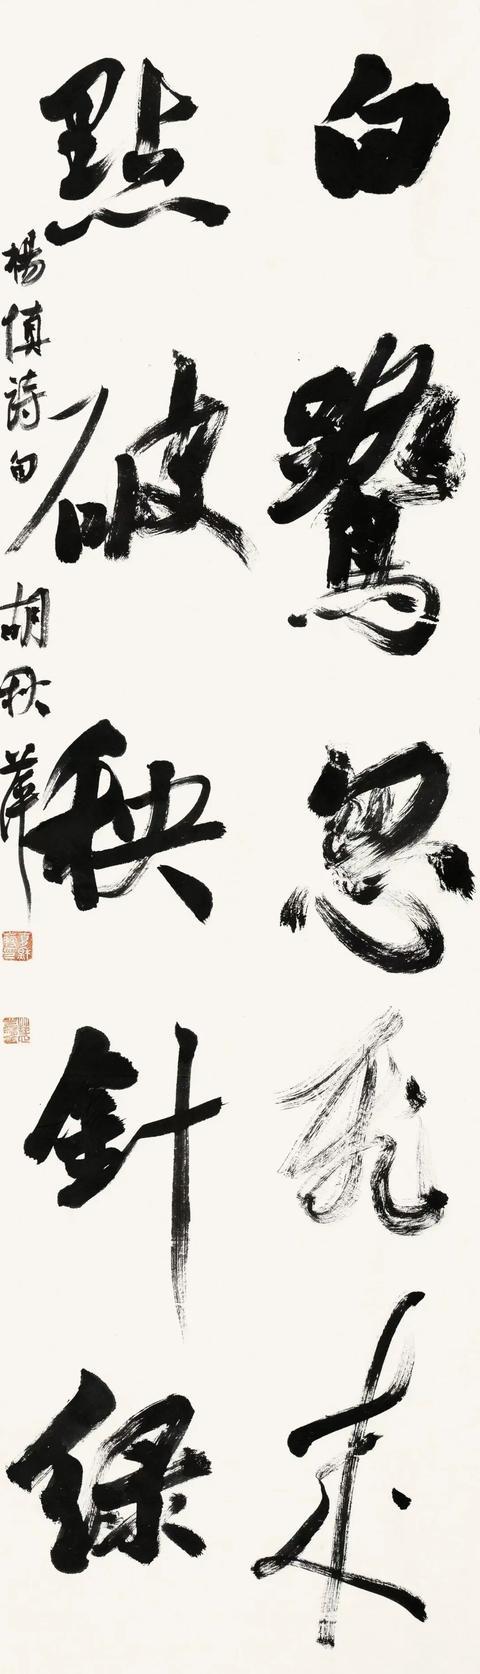 白鷺忽飛來
點破秧針綠
楊慎詩句 胡秋萍